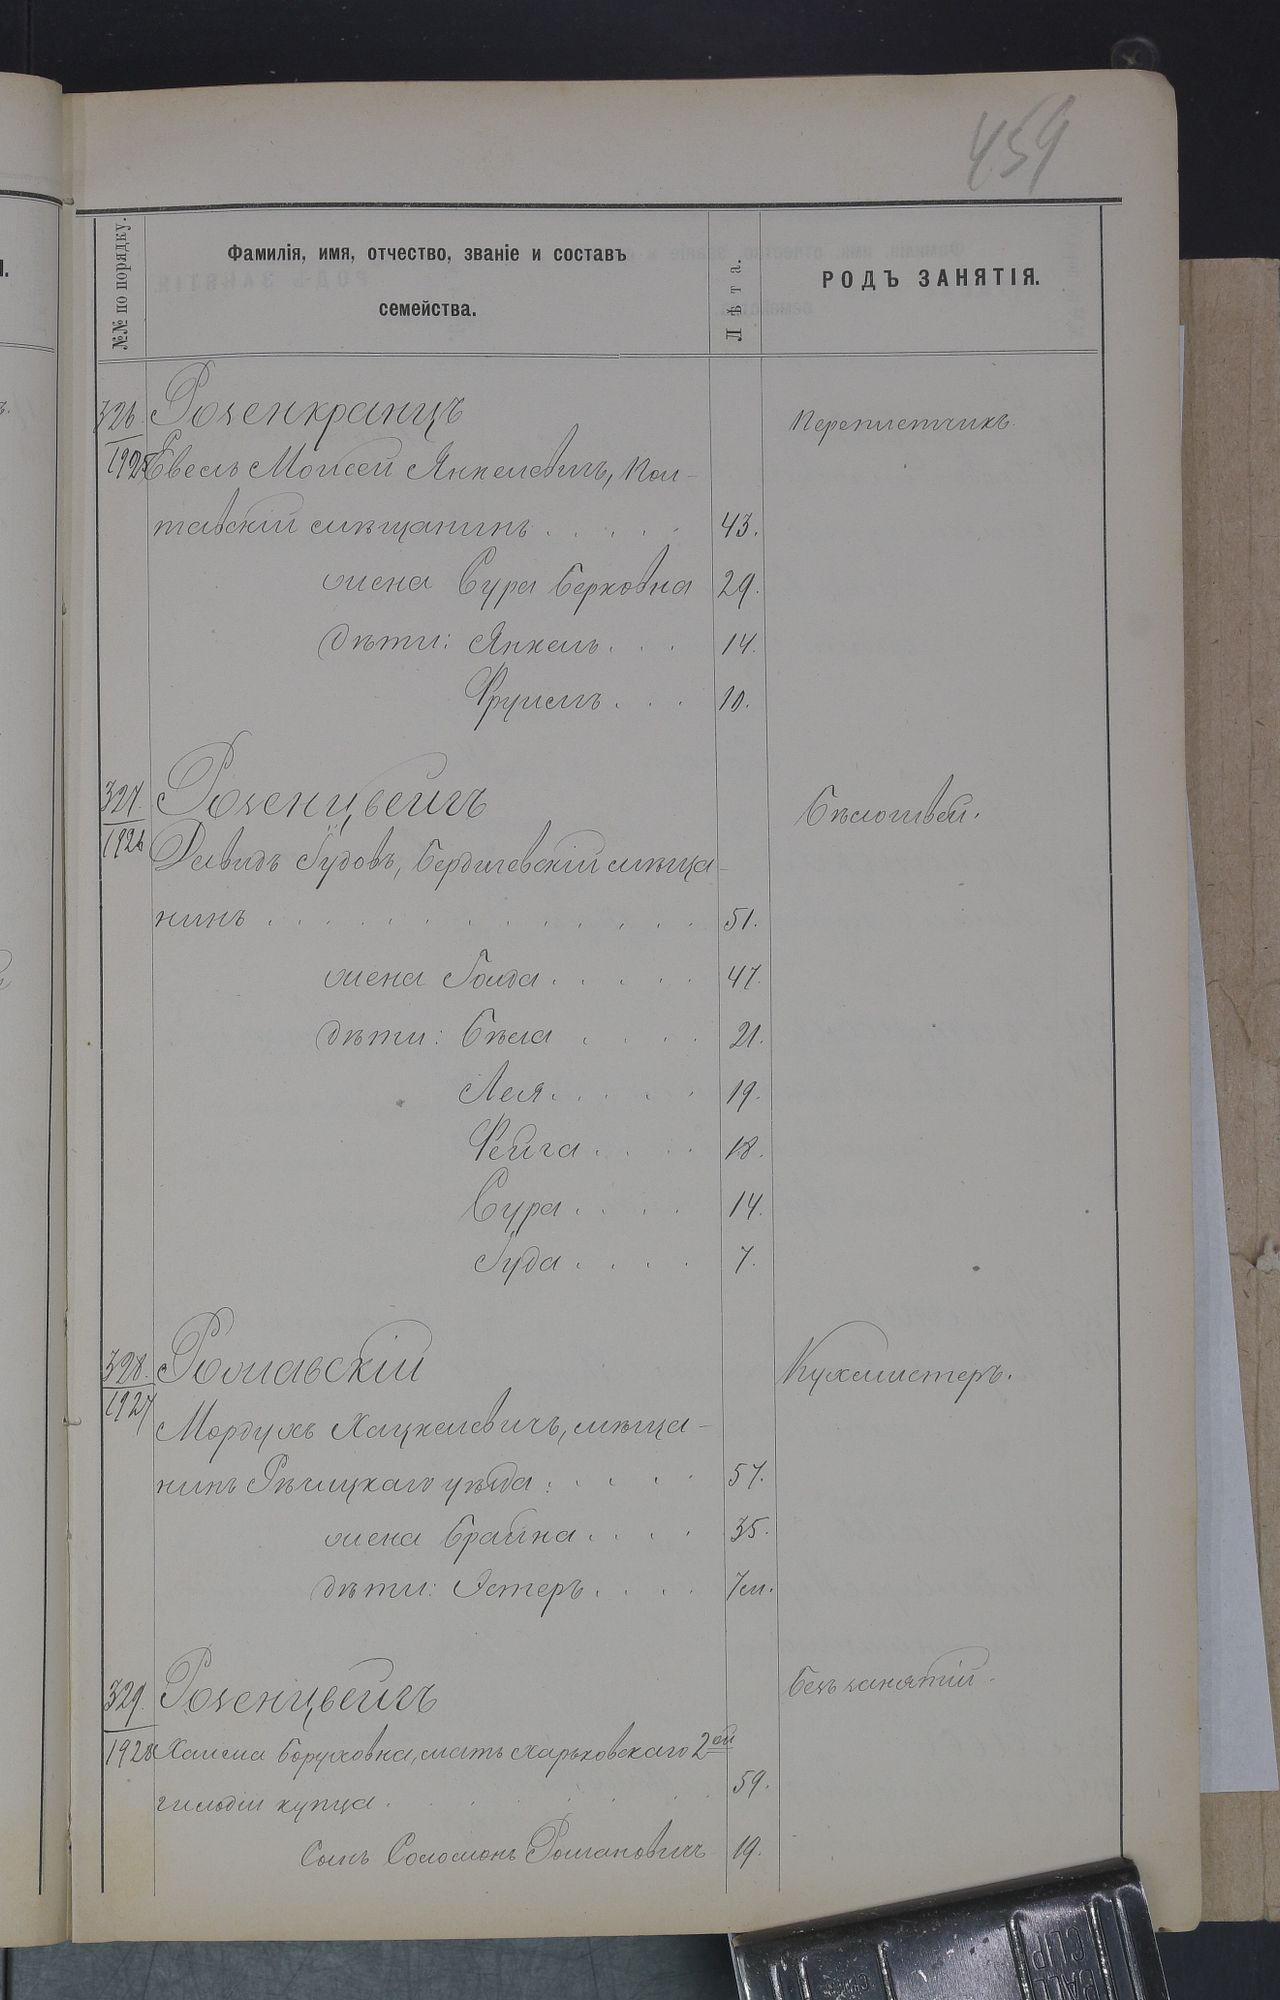 459
№№ по порядку.
Фамилія, имя, отчество, званіе и составъ
семейства.
Лѣта.
РОДЪ ЗАНЯТІЯ.
326. Розенкранцъ Переплетчикъ.
1925 Евель Мойсей Янкелевичъ, Пол-
тавскій мѣщанинъ . . . . . 43.
жена Сура Берковна 29.
дѣти: Янкель . . . 14.
Фруимъ . . . 10.
327. Розенцвейгъ Бѣлошвей.
1926 Давидъ Іудовъ, Бердичевскій мѣща-
нинъ . . . . . . . . . . . . 51.
жена Голда . . . . . 47.
дѣти: Бѣла . . . . 21.
Лея . . . . . 19.
Фейга . . . . 18.
Сура . . . . 14.
Іуда . . . . 7.
328. Рожавскій Кухмистеръ.
1927
Мордухъ Хацкелевичъ, мѣща-
нинъ Рѣчицкаго уѣзда . . . . . 57.
жена Брайна . . . . 35.
дѣти: Эстеръ . . . . 7 м.
329. Розенцвейгъ Безъ занятій.
1928 Боруховна, мать Харьковскаго 2ой
гильдіи купца . . . . . . . 59.
Сынъ Соломонъ Романовичъ 19.